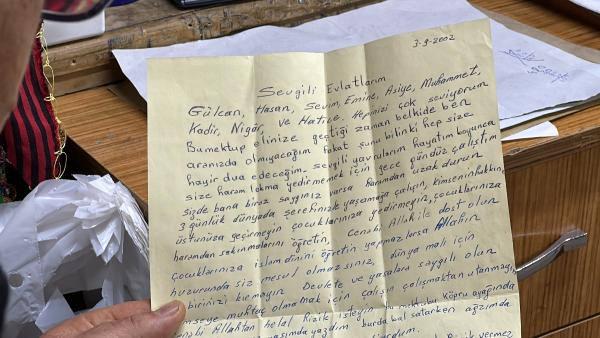 3-9-2002
Sevgili Evlatlarım
Gülcan, Hasan, Sevim, Emine, Asiye, Muhammet,
Kadir, Nigâr, ve Hatice. Hepinizi çok seviyorum
Bumektup elinize geçtiği zaman belkide ben
aranızda olmıyacağım fakat şunu bilinki hep size
hayir dua edeceğim. sevgili yavrularım hayatım boyunca
size haram lokma yedirmemek için gece gündüz çalıştım
sizde bana biraz saygınız varsa haramdan uzak durun
3 günlük dünyada şerefinizle yaşamaya çalışın, kimseninhakkını,
üstünüza geçirmeyin çocuklarınıza yedirmeyin, çocuklarınıza
haramdan sakınmalarını öğretin, Cenabı Allah ile dost olun
çocuklarınıza islam dinini öğretin yapmazlarsa Allahın
huzurunda siz mesul olmazsınız, dünya malı için
birinizi kırmayın Devlete ve yasalara saygılı olun
kimseye muhtaç olmamak için çalışın çalışmaktan utanmayı,
Cenabı Allahtan helal rızık isteyin mektubu Köprü ayağında
yazdım burda bal satarken ağzımda